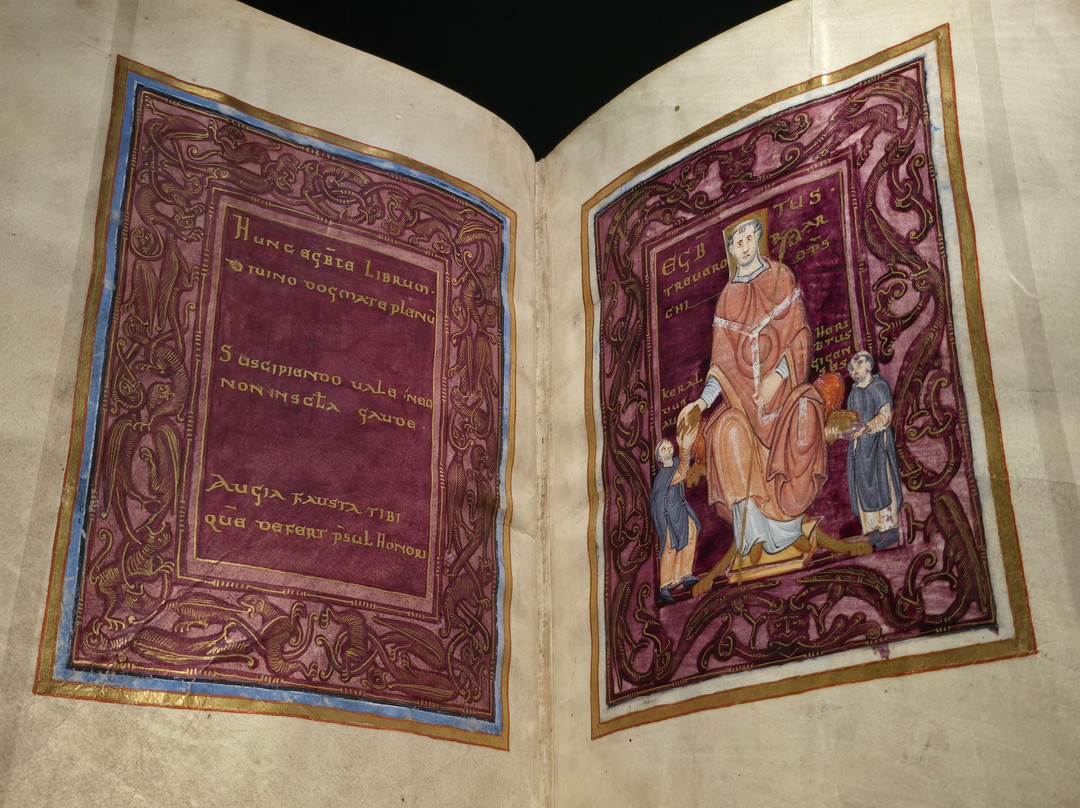 HUNC EGB̄TE LIBRUM·
DIUINO DOGMATE PLENŪ
SUSCIPIENDO UALE NEC
NON INSCL̄A GAUDE·
AUGIA FAUSTA TIBI
QUĒ DEFERT PS̄UL HONORI
EGB TUS·
TREUERO R AR
CHI EP̄S
KERAL
DUS
AU
HERI
B̄TUS
GIGEN
SIS